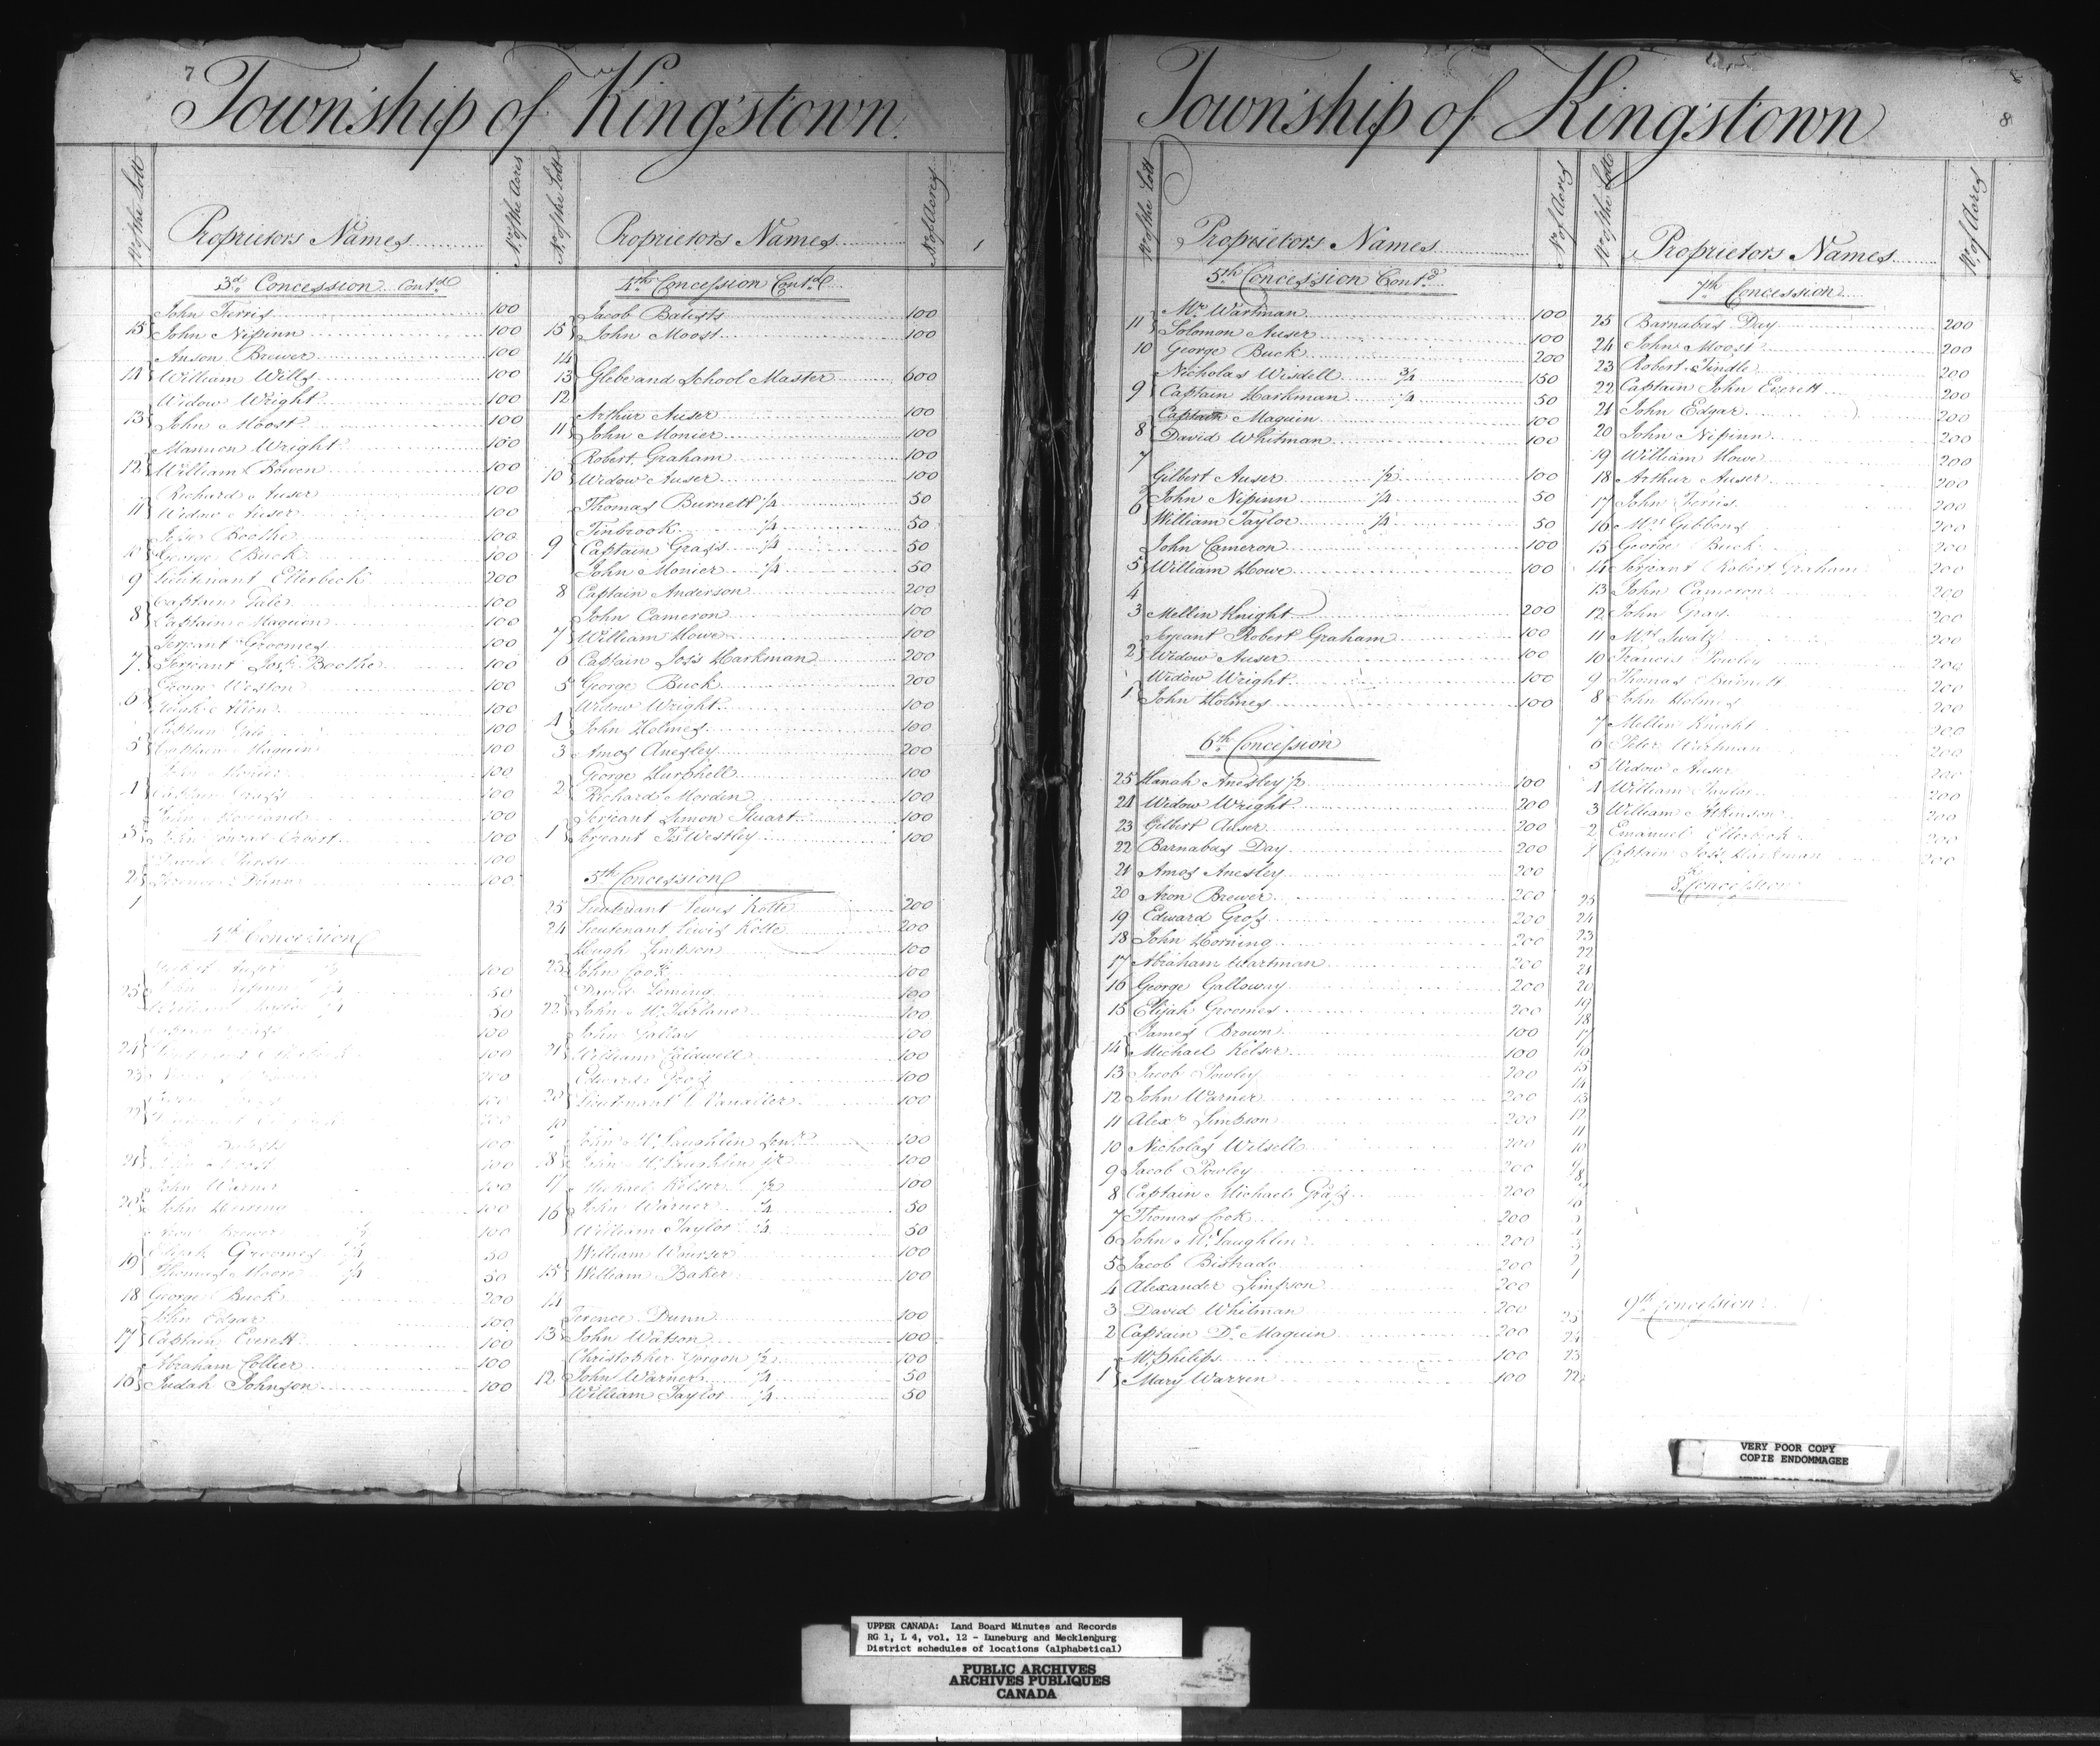 7
Township of Kingstown
No. of the Lott
Proprietors Names
No. of the Acres
3d. Concession Contd
John Ferris 100
15 John Nissinn 100
Anson Brewer 100
14 William Wills 100
Widow Wright 100
13 John Moost 100
Mannon Wright 100
12 William Bowen 100
Richard Auser 100
11 Widow Auser 100
Boothe 100
10 George Buck 100
9 Lieutinant Ellerbeck 200
Captain Gale 100
8 Captain Maguin 100
Serjeant Groomes 100
7 Serjeant Josh. Boothe 100
George Weston 100
6 100
Captain Gale 100
5 Captain Maguin 100
John Monier 100
4 Captain Grass 100
100
3 John 100
David 100
2 Terence Dunn 100
1
4th Concession
Auser 1/2 100
25 John Nissinn 1/4 50
William Taylor 1/4 50
Captain Grass 100
24 100
23 200
22
100
21 John Moost 100
John Warner 100
20 John 100
Aron Brewer 1/2 100
Elijah Groomes 1/4 50
19 Thomas Moore 1/4 50
18 George Buck 200
John Edgar 100
17 Captain Everett 100
Abraham Collier 100
16 Judah Johnson 100
No. of the Lott
Proprietors Names
No. of Acres
4th Concession Contd
Jacob Batists 100
15 John Moost 100
14
13 Glebe and School Master 600
12
Arthur Auser 100
11 John Monier 100
Robert Graham 100
10 Widow Auser 100
Thomas Burnett 1/4 50
Finbrook 1/4 50
9 Captain Grass 1/4 50
John Monier 1/4 50
8 Captain Anderson 200
John Cameron 100
7 William Howe 100
6 Captain Joss Harkman 200
5 George Buck 200
Widow Wright 100
4 John Holmes 100
3 Amos Anesley 200
George Murphell 100
2 Richard Morden 100
Serjeant Simon Stuart 100
1 Serjeant Js. Westley 100
5th Concession
25 Lieutenant Lewis Kotte 200
24 Lieutenant Lewis Kotte 200
Hugh Simpson 100
23 John Cook 100
David Leming 100
22 John McFarlane 100
John Gallay 100
21 William Caldwell 100
Edward Gross 100
20 Lieutenant C Vanalter 100
19
John McLaughlin Senr. 100
18 John McLaughlin jr. 100
17 Michael Kelser 1/2 100
16 John Warner 1/4 50
William Taylor 1/4 50
William Wourser 100
15 William Baker 100
14
Terence Dunn 100
13 John Watson 100
Christopher Gorgon 1/2 100
12 John Warner 1/4 50
William Taylor 1/4 50
8
Township of Kingstown
No. of the Lott
Proprietors Names
No. of Acres
5th Concession Contd
Mr. Wartman 100
11 Solomon Auser 100
10 George Buck 200
Nicholas Wisdell 3/4 150
9 Captain Harkman 1/4 50
Captain Maguin 100
8 David Whitman 100
7
Gilbert Auser 1/2 100
John Nissinn 1/4 50
6 William Taylor 1/4 50
John Cameron 100
5 William Howe 100
4
3 Mellin Knight 200
Serjeant Robert Graham 100
2 Widow Auser 100
Widow Wright 100
1 John Holmes 100
6th Concession
25 Hanah Anesley 1/2 100
24 Widow Wright 200
23 Gilbert Auser 200
22 Barnabas Day 200
21 Amos Anesley 200
20 Aron Brewer 200
19 Edward Gross 200
18 John Horning 200
17 Abraham Wartman 200
16 George Galloway 200
15 Elijah Groomes 200
James Brown 100
14 Michael Kelser 100
13 Jacob Powley 200
12 John Warner 200
11 Alexr. Simpson 200
10 Nicholas Witsell 200
9 Jacob Powley 200
8 Captain Michael Grass 200
7 Thomas Cook 200
6 John McLaughlin 200
5 Jacob Bistrado 200
4 Alexander Simpson 200
3 David Whitman 200
2 Captain Dr. Maguin 200
McPhilips 100
1 Mary Warren 100
No. of the Lotts
Proprietors Names
No. of Acres
7th Concession
25 Barnabas Day 200
24 John Moost 200
23 Robert Findle 200
22 Captain John Everett 200
21 John Edgar 200
20 John Nissinn 200
19 William Howe 200
18 Arthur Auser 200
17 John Ferris 200
16 Mrs. Gibbons 200
15 George Buck 200
14 Serjeant Robert Graham 200
13 John Cameron 200
12 John Gray 200
11 Mrs. Swatz 200
10 Francis Powley 200
9 Thomas Burnett 200
8 John Holmes 200
7 Mellin Knight 200
6 Peter Wartman 200
5 Widow Auser 200
4 William Taylor 200
3 William Atkinson 200
2 Emanuel Ellerbeck 200
1 Captain Joss Harkman 200
8th Concession
25
24
23
22
21
20
19
18
17
16
15
14
13
12
11
10
9
8
7
6
5
4
3
2
1
9th Concession
25
24
23
22
VERY POOR COPY
COPIE ENDOMMAGEE
UPPER CANADA: Land Board Minutes and Records
RG 1, L 4, vol. 12 - Luneburg and Mecklenburg
District schedules of locations (alphabetical)
PUBLIC ARCHIVES
ARCHIVES PUBLIQUES
CANADA